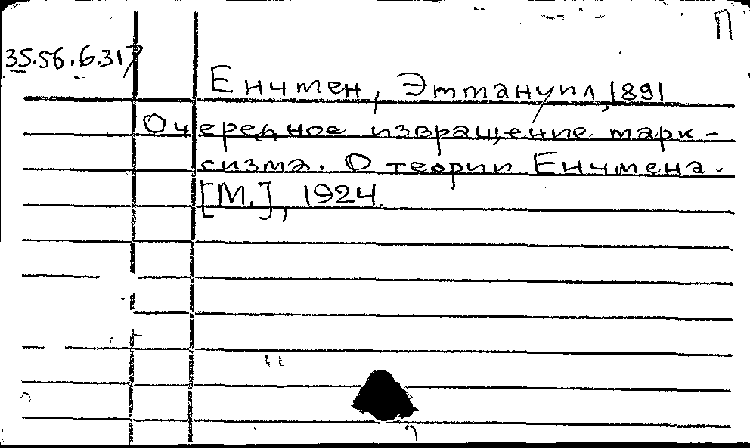 П
35.56.6.317
Енчмен, Эммануил, 1891
Очередное извращение марк-
сизма. О теории Енчмена.
[М.], 1924.